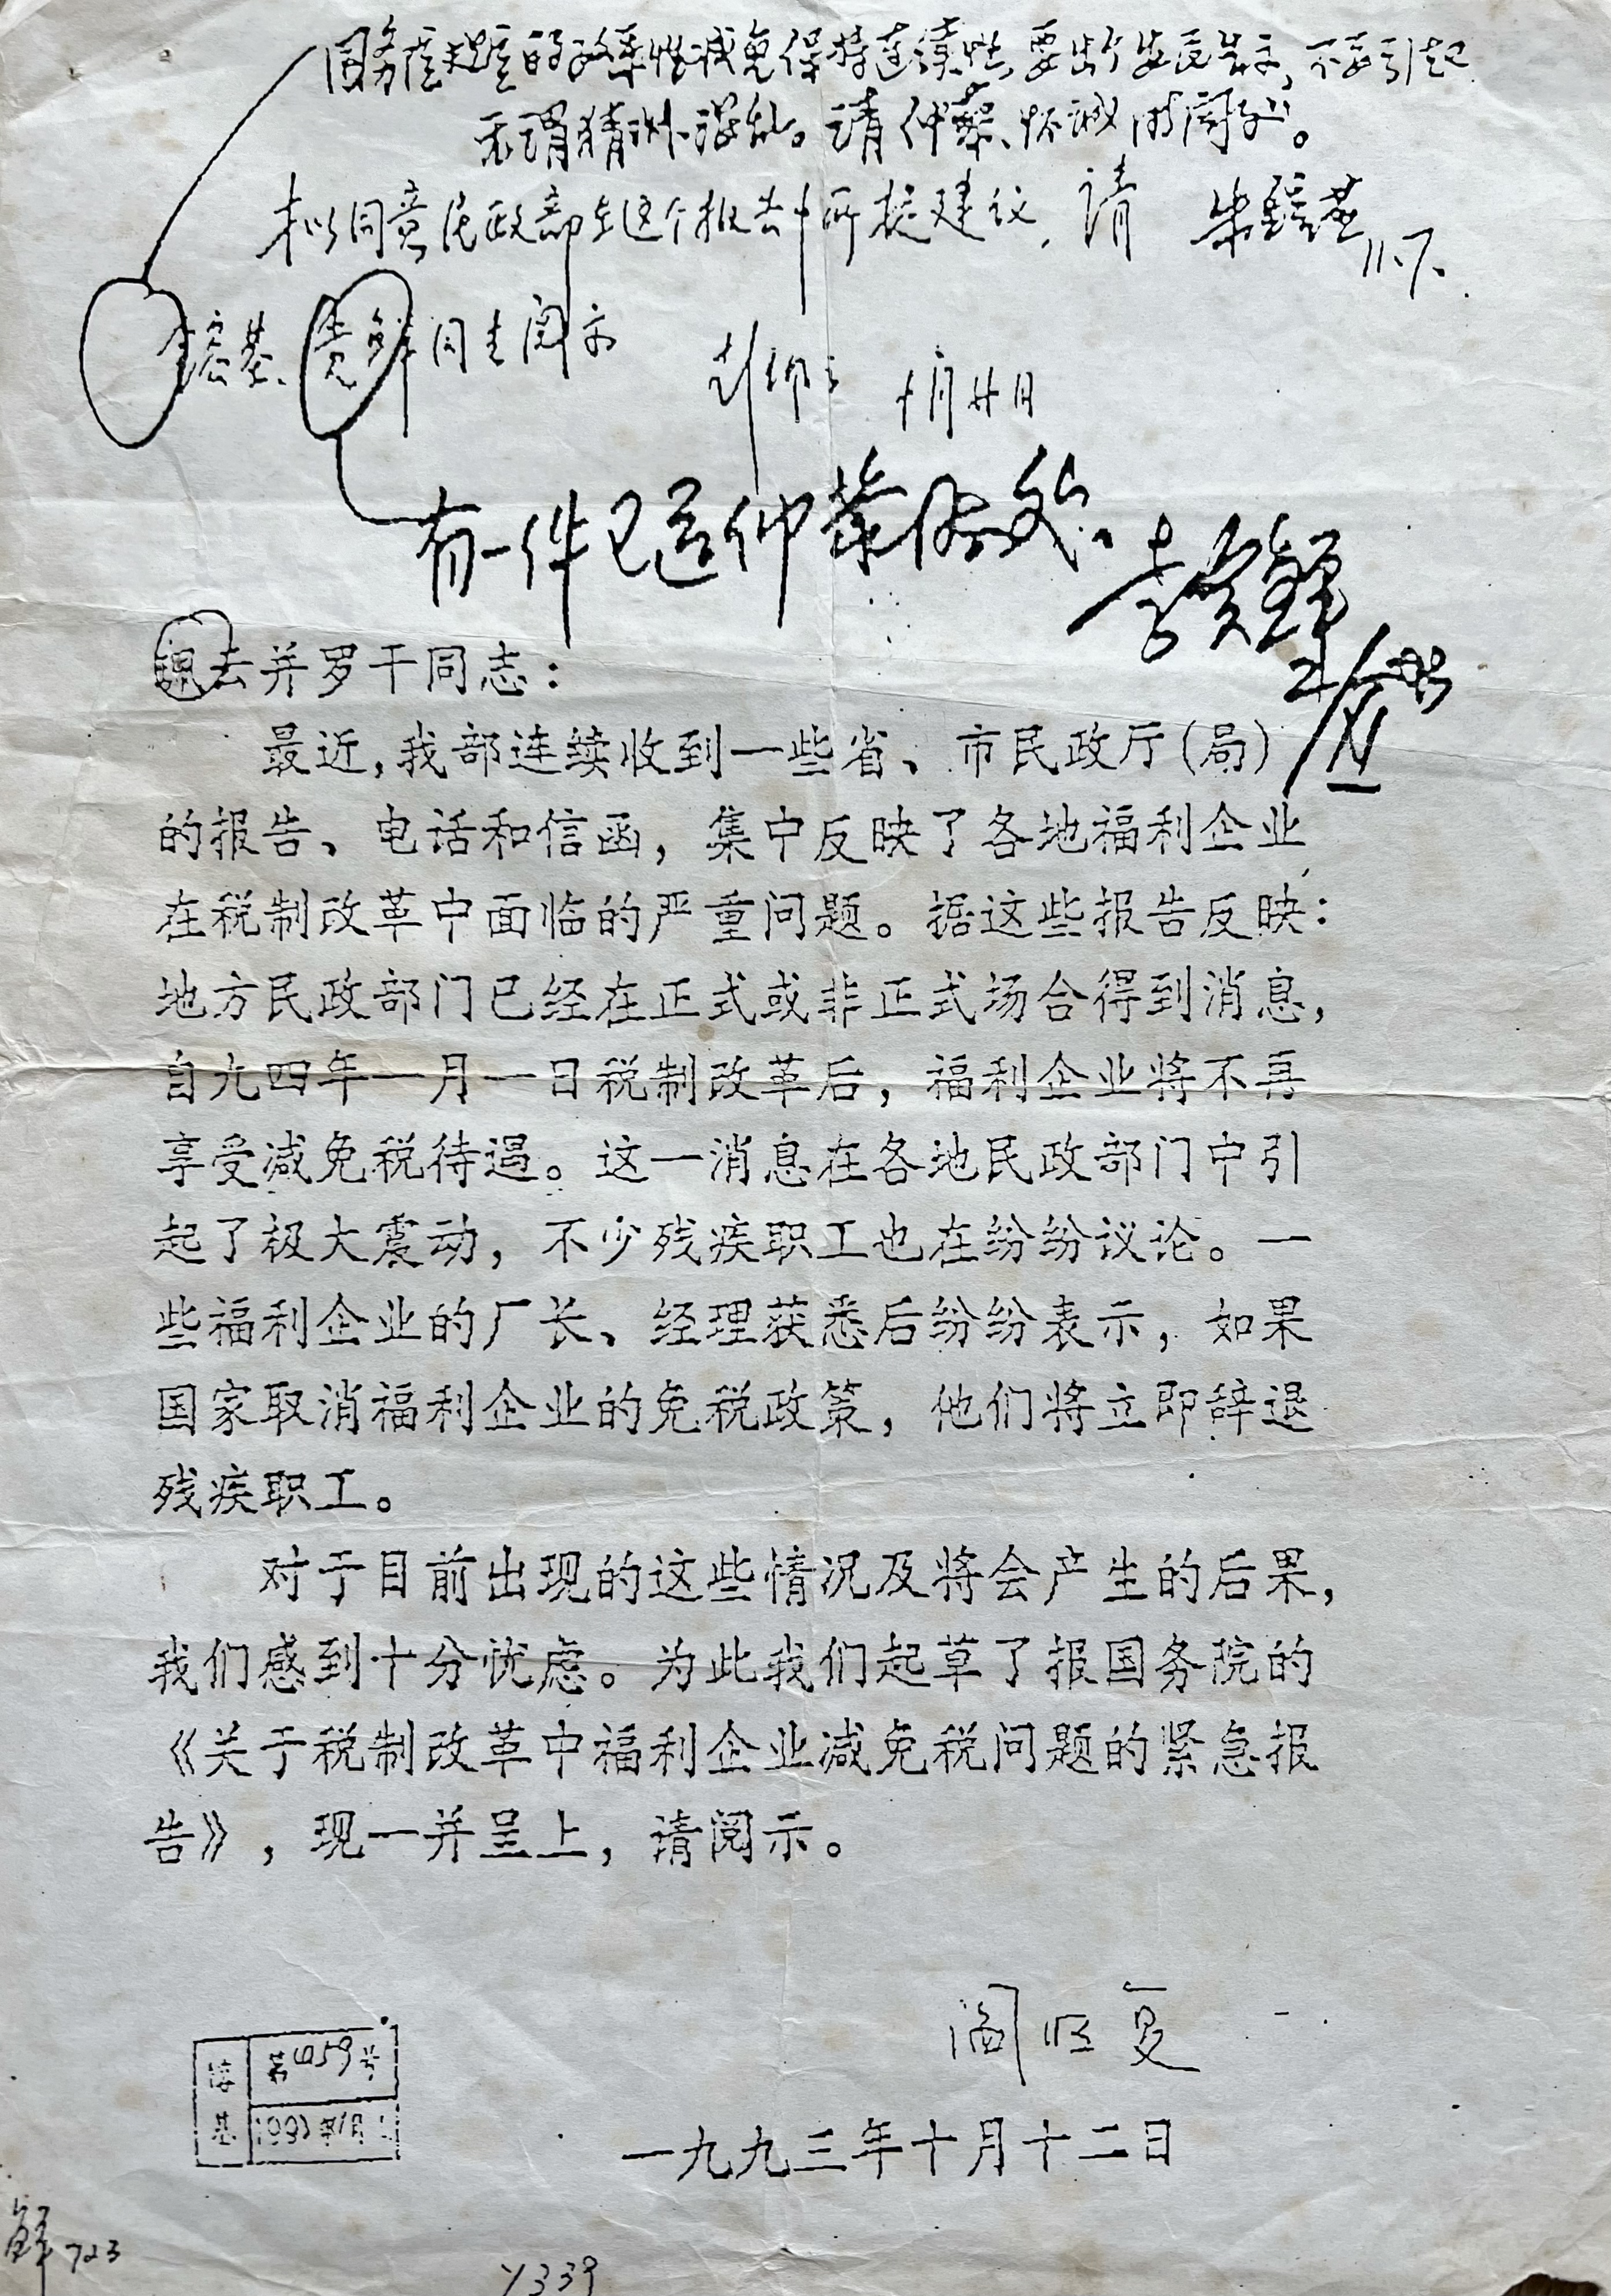 要出个安民告示，不要引起
无谓猜测混乱。请仲藜、怀诚同志阅办。
拟同意民政部在这个报告中所提建议，请 朱镕基 11.7.
镕基、贵鲜同志阅示
十月廿日
有一件已送仲藜 李贵鲜
并罗干同志：
最近，我部连续收到一些省、市民政厅（局）
的报告、电话和信函，集中反映了各地福利企业
在税制改革中面临的严重问题。据这些报告反映：
地方民政部门已经在正式或非正式场合得到消息，
自九四年一月一日税制改革后，福利企业将不再
享受减免税待遇。这一消息在各地民政部门中引
起了极大震动，不少残疾职工也在纷纷议论。一
些福利企业的厂长、经理获悉后纷纷表示，如果
国家取消福利企业的免税政策，他们将立即辞退
残疾职工。
对于目前出现的这些情况及将会产生的后果，
我们感到十分忧虑。为此我们起草了报国务院的
《关于税制改革中福利企业减免税问题的紧急报
告》，现一并呈上，请阅示。
阎明复
一九九三年十月十二日
镕基 第4059号
鲜 723
Y339